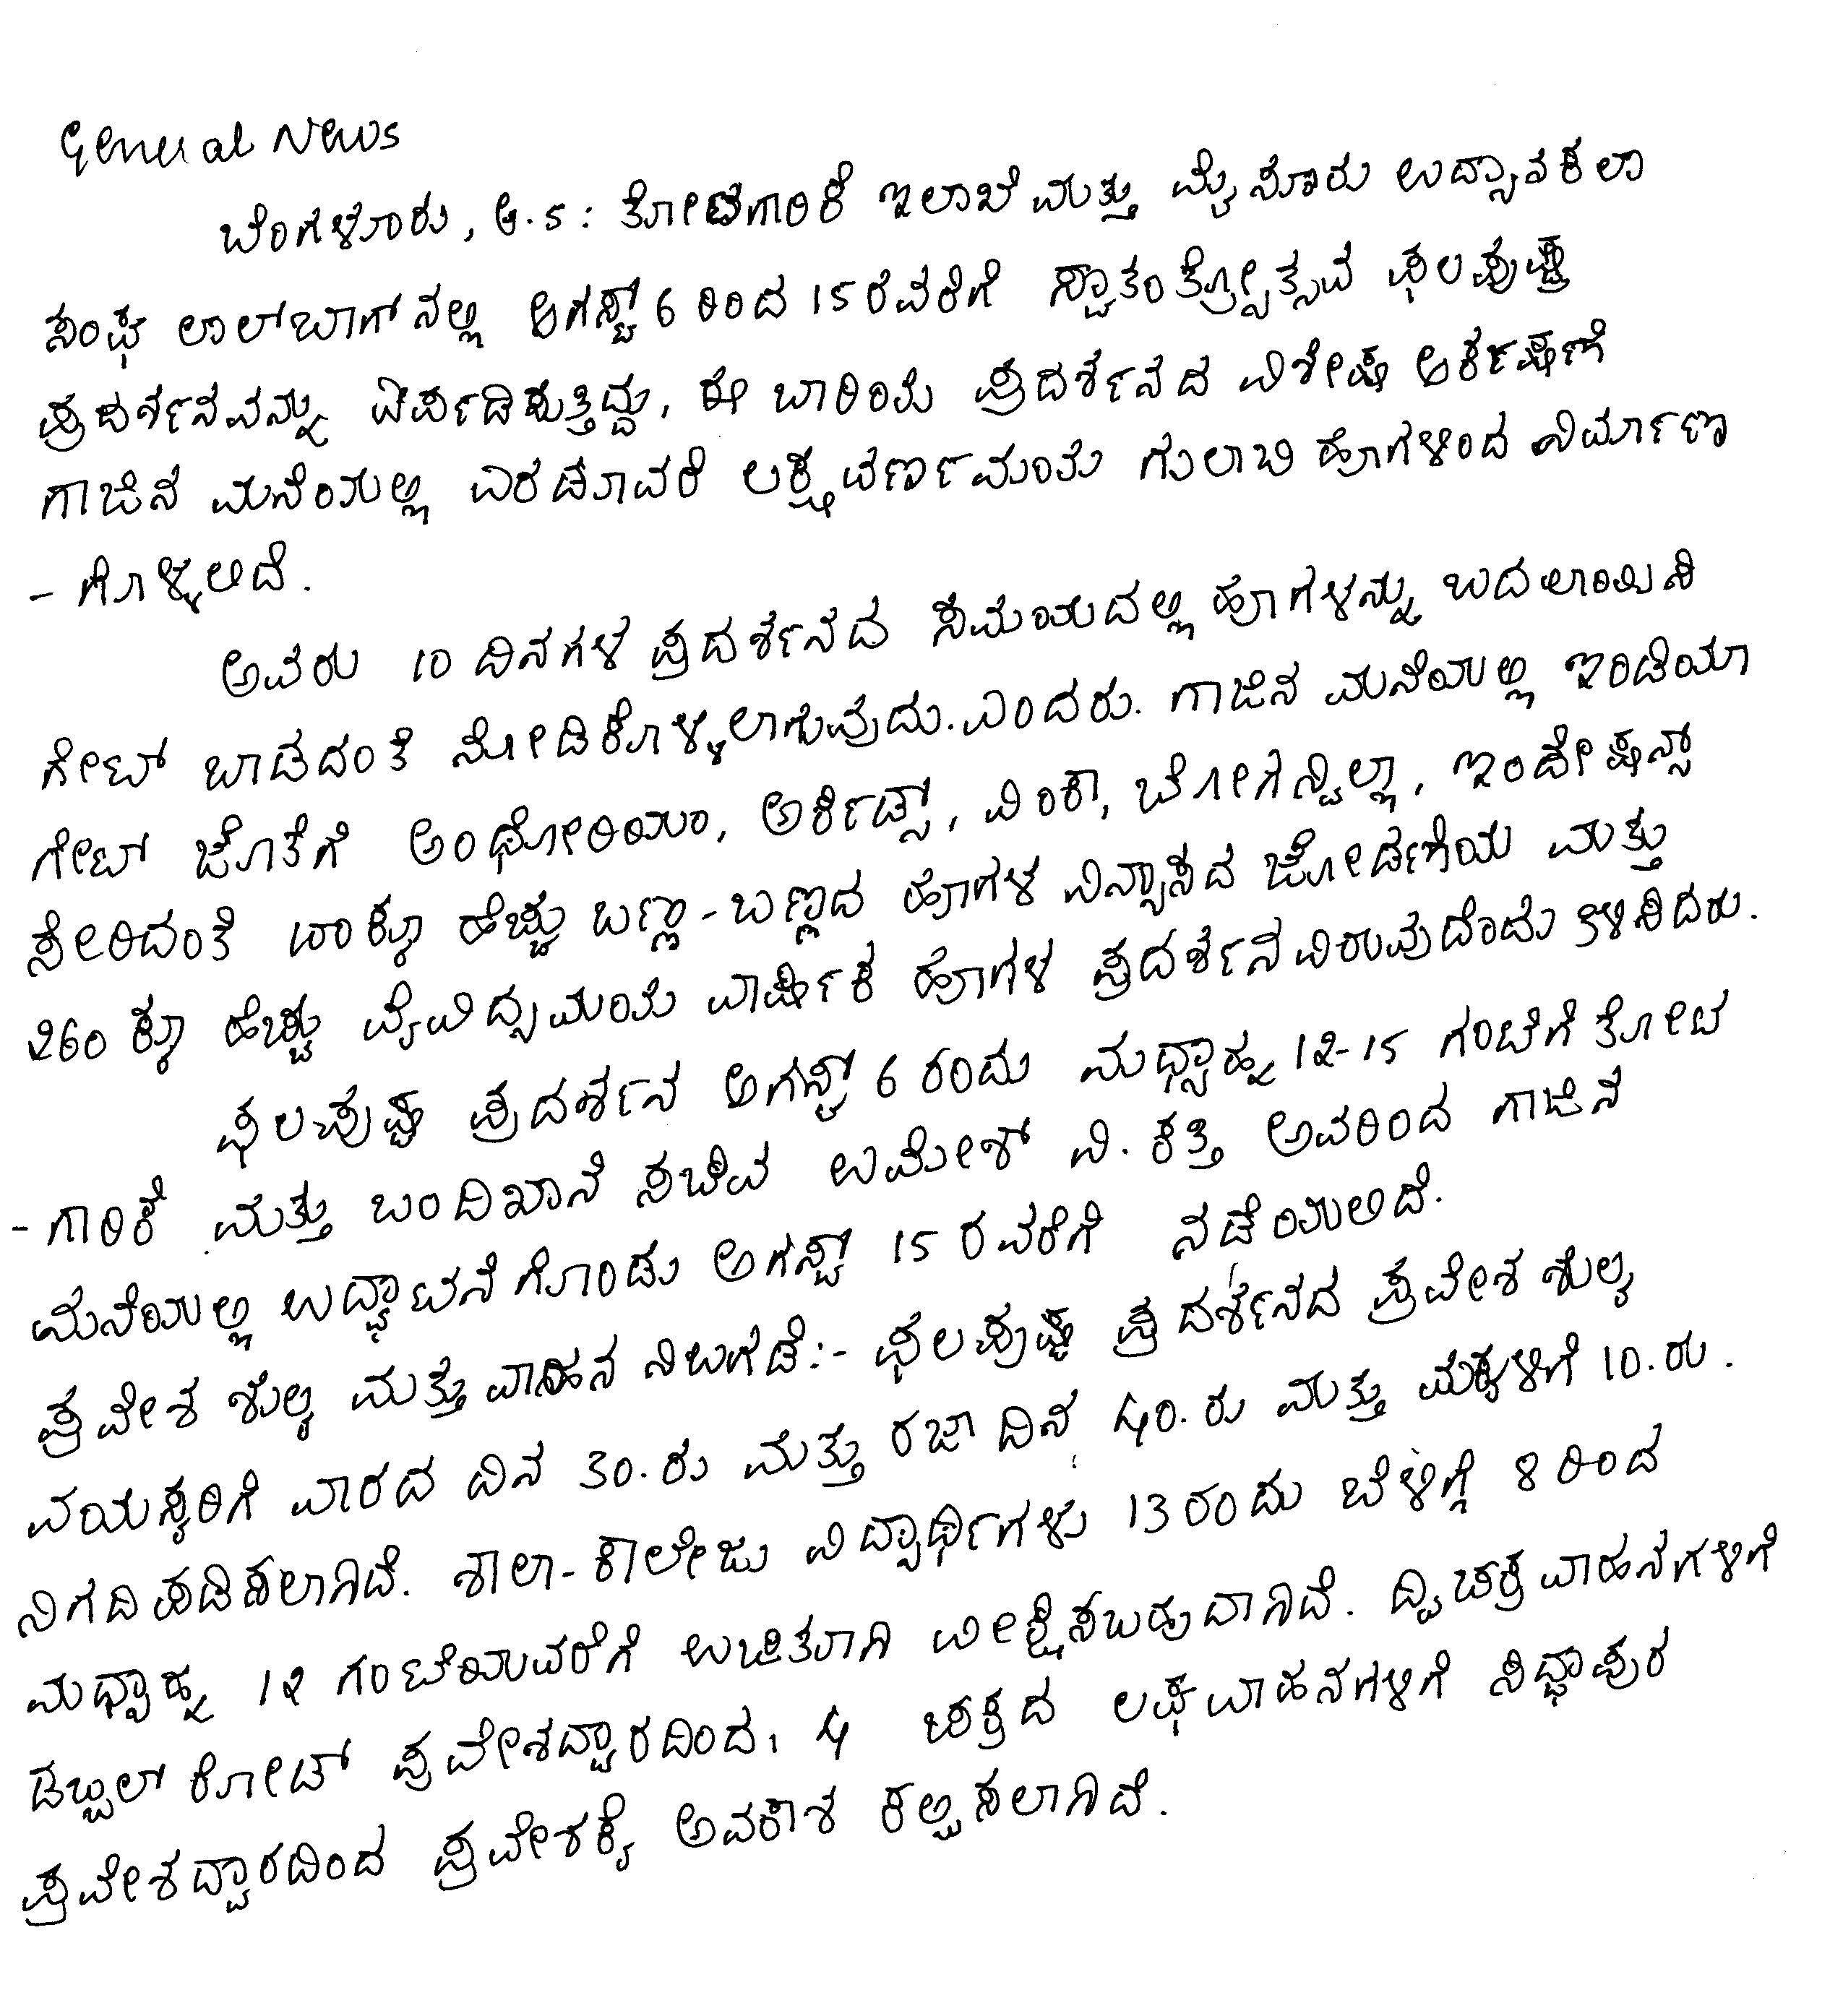 General News
ಬೆಂಗಳೂರು, ಆ.5: ತೋಟಗಾರಿಕೆ ಇಲಾಖೆ ಮತ್ತು ಮೈಸೂರು ಉದ್ಯಾನಕಲಾ
ಸಂಘ ಲಾಲ್‌ಬಾಗ್‌ನಲ್ಲಿ ಆಗಸ್ಟ್ 6 ರಿಂದ 15 ರವರೆಗೆ ಸ್ವಾತಂತ್ರ್ಯೋತ್ಸವ ಫಲಪುಷ್ಪ
ಪ್ರದರ್ಶನವನ್ನು ಏರ್ಪಡಿಸುತ್ತಿದ್ದು, ಈ ಬಾರಿಯ ಪ್ರದರ್ಶನದ ವಿಶೇಷ ಆಕರ್ಷಣೆ
ಗಾಜಿನ ಮನೆಯಲ್ಲಿ ಎರಡೂವರೆ ಲಕ್ಷ ವರ್ಣಮಯ ಗುಲಾಬಿ ಹೂಗಳಿಂದ ನಿರ್ಮಾಣ
- ಗೊಳ್ಳಲಿದೆ.
ಅವರು 10 ದಿನಗಳ ಪ್ರದರ್ಶನದ ಸಮಯದಲ್ಲಿ ಹೂಗಳನ್ನು ಬದಲಾಯಿಸಿ
ಗೇಟ್ ಬಾಡದಂತೆ ನೋಡಿಕೊಳ್ಳಲಾಗುವುದು. ಎಂದರು. ಗಾಜಿನ ಮನೆಯಲ್ಲಿ ಇಂಡಿಯಾ
ಗೇಟ್ ಜೊತೆಗೆ ಅಂಥೋರಿಯಂ, ಆರ್ಕಿಡ್ಸ್, ವಿಂಕಾ, ಬೋಗೆನ್ವಿಲ್ಲಾ, ಇಂಪೇಷನ್ಸ್
ಸೇರಿದಂತೆ ಹೆಚ್ಚು ಬಣ್ಣ-ಬಣ್ಣದ ಹೂಗಳ ವಿನ್ಯಾಸದ ಜೋಡಣೆಯ ಮತ್ತು
260 ಕ್ಕೂ ಹೆಚ್ಚು ವೈವಿಧ್ಯಮಯ ವಾರ್ಷಿಕ ಹೂಗಳ ಪ್ರದರ್ಶನವಿರುವುದೆಂದು ತಿಳಿಸಿದರು.
ಫಲಪುಷ್ಪ ಪ್ರದರ್ಶನ ಆಗಸ್ಟ್ 6 ರಂದು ಮಧ್ಯಾಹ್ನ 12-15 ಗಂಟೆಗೆ ತೋಟ
- ಗಾರಿಕೆ ಮತ್ತು ಬಂದಿಖಾನೆ ಸಚಿವ ಉಮೇಶ್ ವಿ. ಕತ್ತಿ ಅವರಿಂದ ಗಾಜಿನ
ಮನೆಯಲ್ಲಿ ಉದ್ಘಾಟನೆಗೊಂಡು ಆಗಸ್ಟ್ 15 ರವರೆಗೆ ನಡೆಯಲಿದೆ.
ಪ್ರವೇಶ ಶುಲ್ಕ ಮತ್ತು ವಾಹನ ನಿಲುಗಡೆ:- ಫಲಪುಷ್ಪ ಪ್ರದರ್ಶನದ ಪ್ರವೇಶ ಶುಲ್ಕ
ವಯಸ್ಕರಿಗೆ ವಾರದ ದಿನ 30.ರು ಮತ್ತು ರಜಾ ದಿನ 40.ರು ಮತ್ತು ಮಕ್ಕಳಿಗೆ 10.ರು.
ನಿಗದಿಪಡಿಸಲಾಗಿದೆ. ಶಾಲಾ-ಕಾಲೇಜು ವಿದ್ಯಾರ್ಥಿಗಳು 13 ರಂದು ಬೆಳಿಗ್ಗೆ 8 ರಿಂದ
ಮಧ್ಯಾಹ್ನ 12 ಗಂಟೆಯವರೆಗೆ ಉಚಿತವಾಗಿ ವೀಕ್ಷಿಸಬಹುದಾಗಿದೆ. ದ್ವಿಚಕ್ರ ವಾಹನಗಳಿಗೆ
ಡಬ್ಬಲ್ ಕೋಟ್ ಪ್ರವೇಶದ್ವಾರದಿಂದ, 4 ಚಕ್ರದ ಲಘುವಾಹನಗಳಿಗೆ ಸಿದ್ಧಾಪುರ
ಪ್ರವೇಶದ್ವಾರದಿಂದ ಪ್ರವೇಶಕ್ಕೆ ಅವಕಾಶ ಕಲ್ಪಿಸಲಾಗಿದೆ.